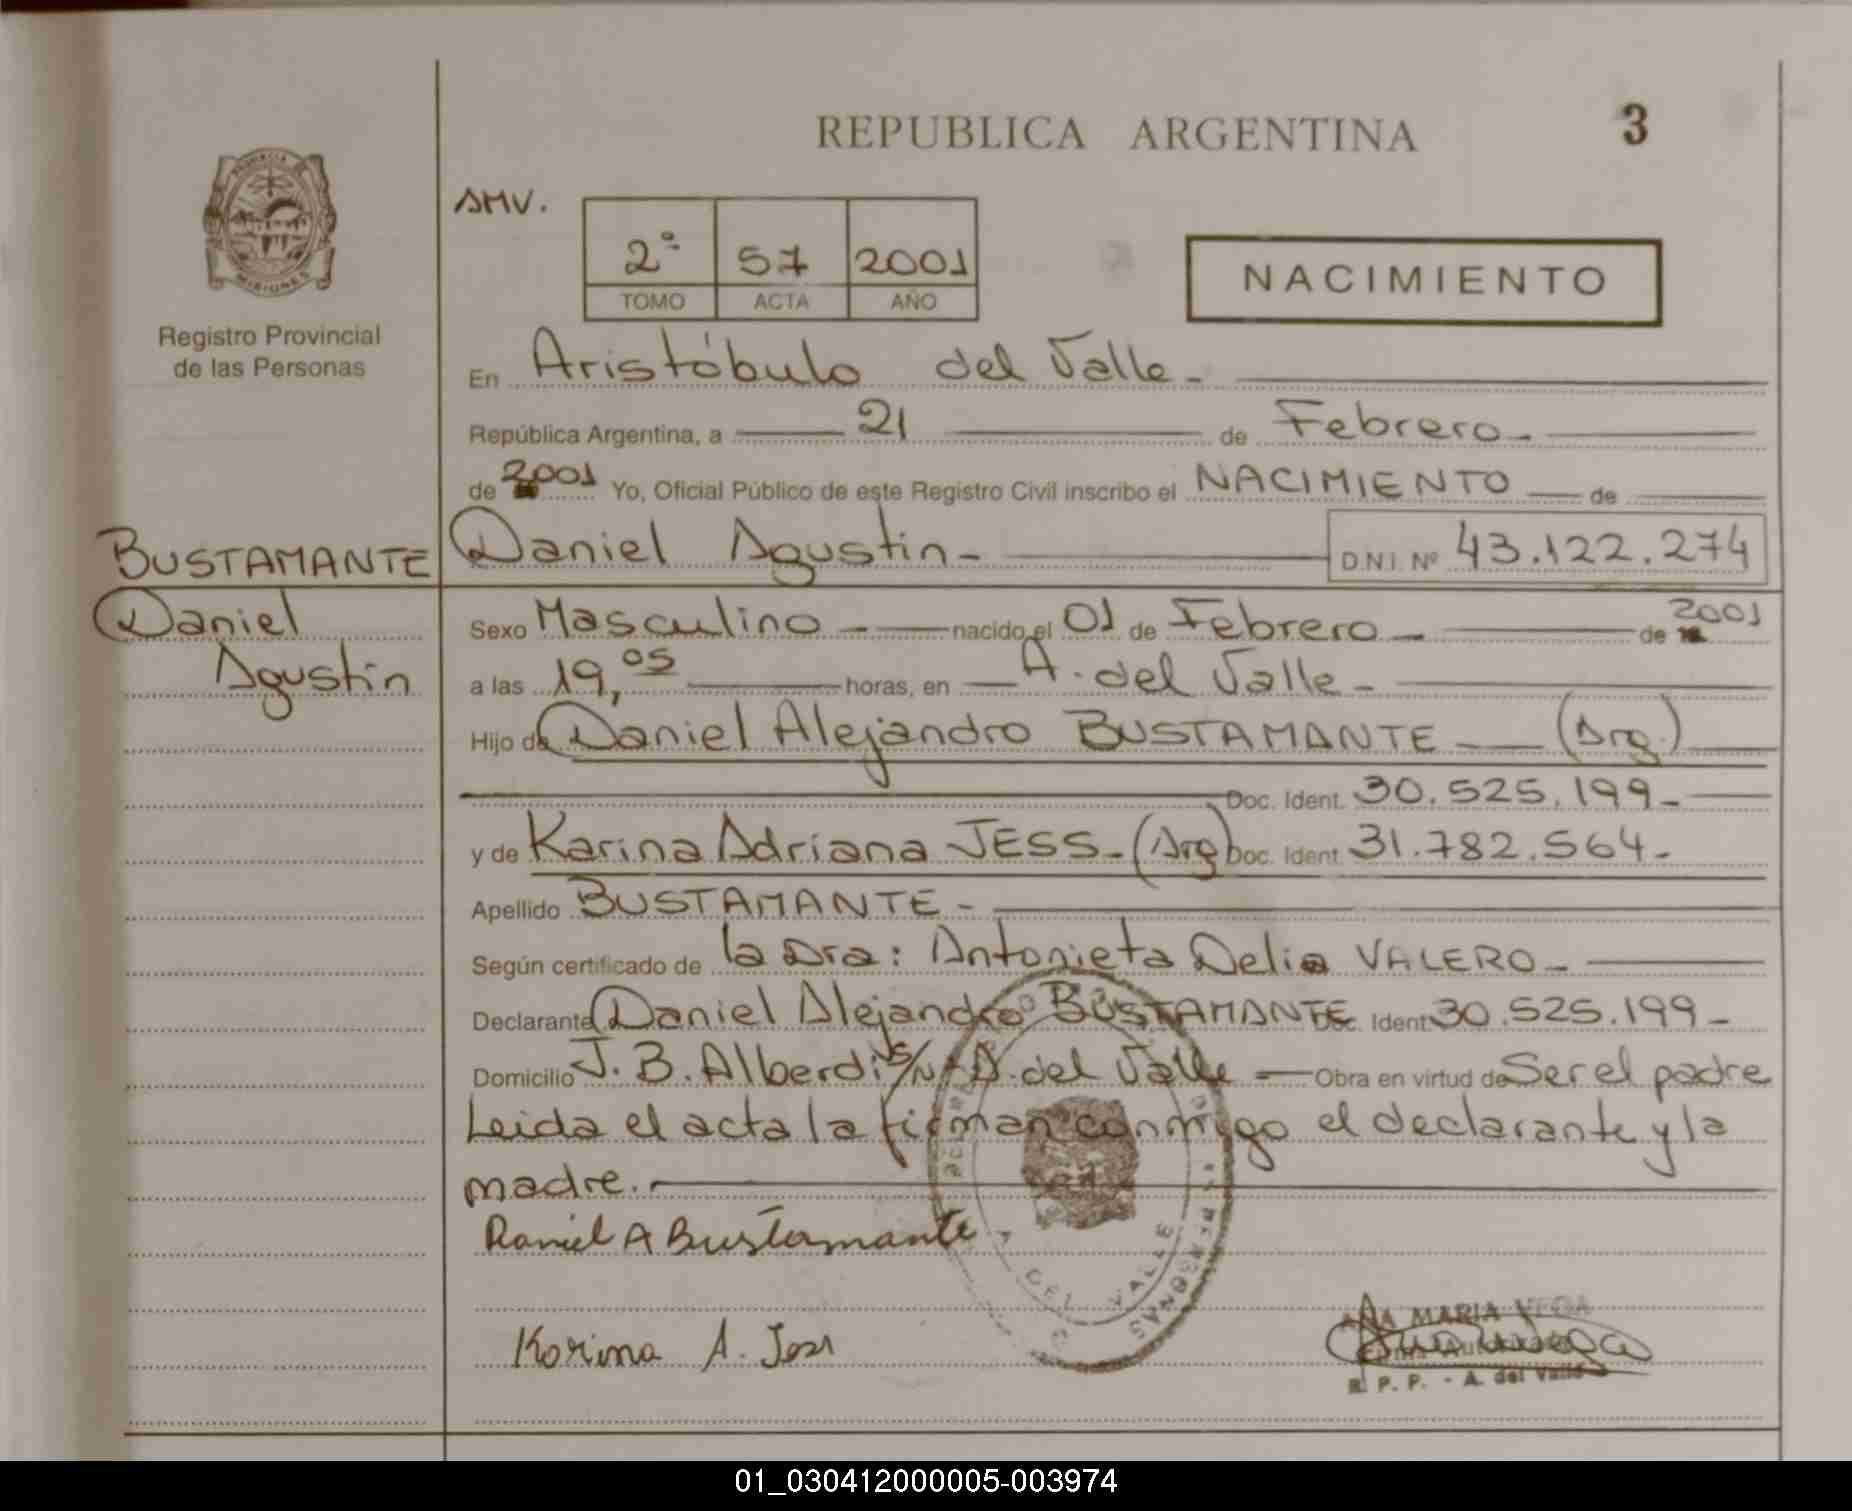 REPUBLICA ARGENTINA
3
PROVINCIA
MISIONES
Registro Provincial
de las Personas
AMV.
2ª 57 2001
TOMO ACTA AÑO
NACIMIENTO
En Aristóbulo del Valle -
República Argentina, a 21 de Febrero -
de 2001 Yo, Oficial Público de este Registro Civil inscribo el NACIMIENTO de
BUSTAMANTE Daniel Agustin - D.N.I. Nº 43.122.274
Daniel Sexo Masculino - nacido el 01 de Febrero - de 2001
Agustin a las 19,05 horas, en A. del Valle -
Hijo de Daniel Alejandro BUSTAMANTE (Arg.)
Doc. Ident. 30.525.199 -
y de Karina Adriana JESS - (Arg) Doc. Ident. 31.782.564 -
Apellido BUSTAMANTE -
Según certificado de la Dra: Antonieta Delia VALERO -
Declarante Daniel Alejandro BUSTAMANTE Doc. Ident 30.525.199 -
Domicilio J. B. Alberdi s/n A. del Valle - Obra en virtud de Ser el padre
Leida el acta la firman conmigo el declarante y la
madre.
Daniel A Bustamante
DEL VALLE
PERSONAS
Karina A. Jess
ANA MARIA VEGA
R. P. P. - A. del Valle
01_030412000005-003974